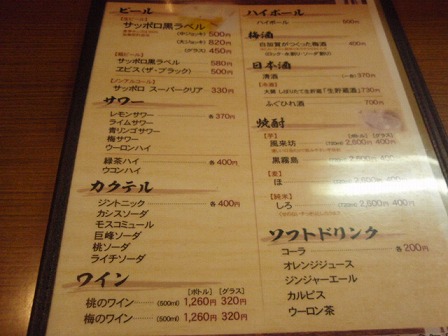 ビール
【生ビール】
サッポロ黒ラベル
(中ジョッキ) 500円
(大ジョッキ) 820円
(グラス) 450円
【瓶ビール】
サッポロ黒ラベル 580円
ヱビス(ザ・ブラック) 500円
【ノンアルコール】
サッポロ スーパークリア 330円
サワー
レモンサワー 各370円
ライムサワー
青リンゴサワー
梅サワー
ウーロンハイ
緑茶ハイ 各400円
ウコンハイ
カクテル
ジントニック 各400円
カシスソーダ
モスコミュール
巨峰ソーダ
桃ソーダ
ライチソーダ
ワイン
[ボトル] [グラス]
桃のワイン (500ml) 1,260円 320円
梅のワイン (500ml) 1,260円 320円
ハイボール
ハイボール 500円
梅酒
400円
日本酒
清酒 370円
【冷酒】
「生貯蔵酒」 730円
ふぐひれ酒 700円
焼酎
【芋】 [ボトル] [グラス]
風来坊 (720ml) 2,500円 400円
黒霧島
【麦】
ほ (720ml) 2,500円 400円
【純米】
しろ (720ml) 2,500円 400円
ソフトドリンク
コーラ 各200円
オレンジジュース
ジンジャーエール
カルピス
ウーロン茶